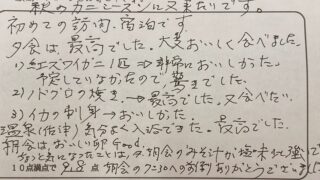 親のカニシーズンに又来たいです。
初めての訪問、宿泊です。
夕食は最高でした。大変おいしく食べました。
1) 紅ズワイガニ1匹 → 非常においしかった。
予定していなかたので、驚きでした。
2) ノドグロの焼き、→最高でした。又食べたい。
3) イカの刺身 → おいしかった。
温泉(佐津)気分よく入浴できた。最高でした。
朝食は、おいしい卵 Good.
ちょっと気になったことは、夕、朝食のみそ汁が塩味強
10点満点で 9.8 点 朝食の の ありがとうござい